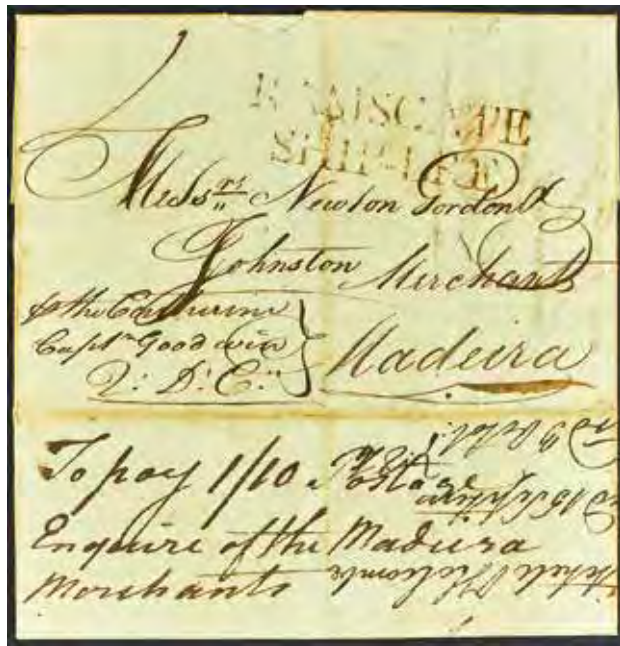 RAMSGATE
SHIP LRE
Messrs Newton Gordon &
Johnston Merchants
Madeira
pr the Catherine
Captn Goodwin
Q: D: C:
To pay 1/10 Postage
Enquire of the Madeira
Merchants